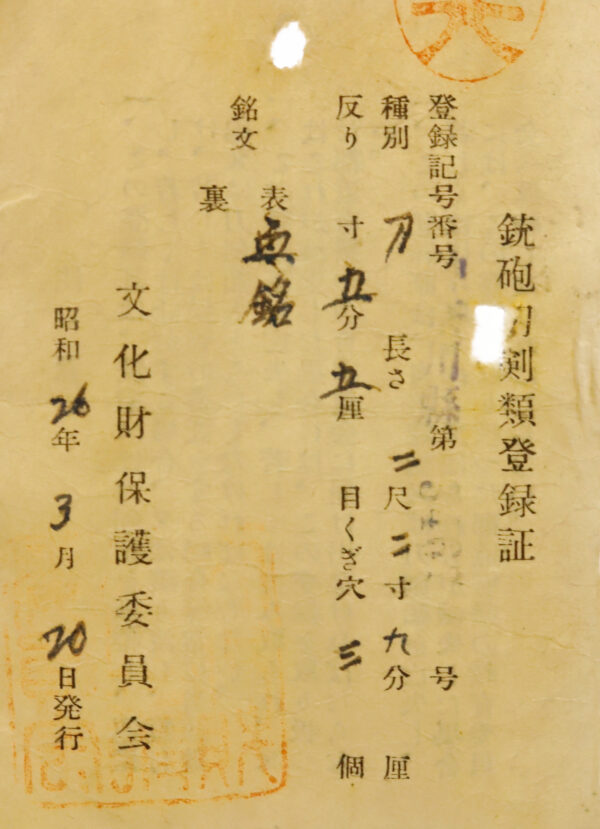 銃砲刀剣類登録証
登録記号番号 第 号
種別 刀 長さ 二尺二寸九分 厘
反り 寸五分五厘 目くぎ穴 三個
銘文
表 無銘
裏
文化財保護委員会
昭和26年3月20日発行